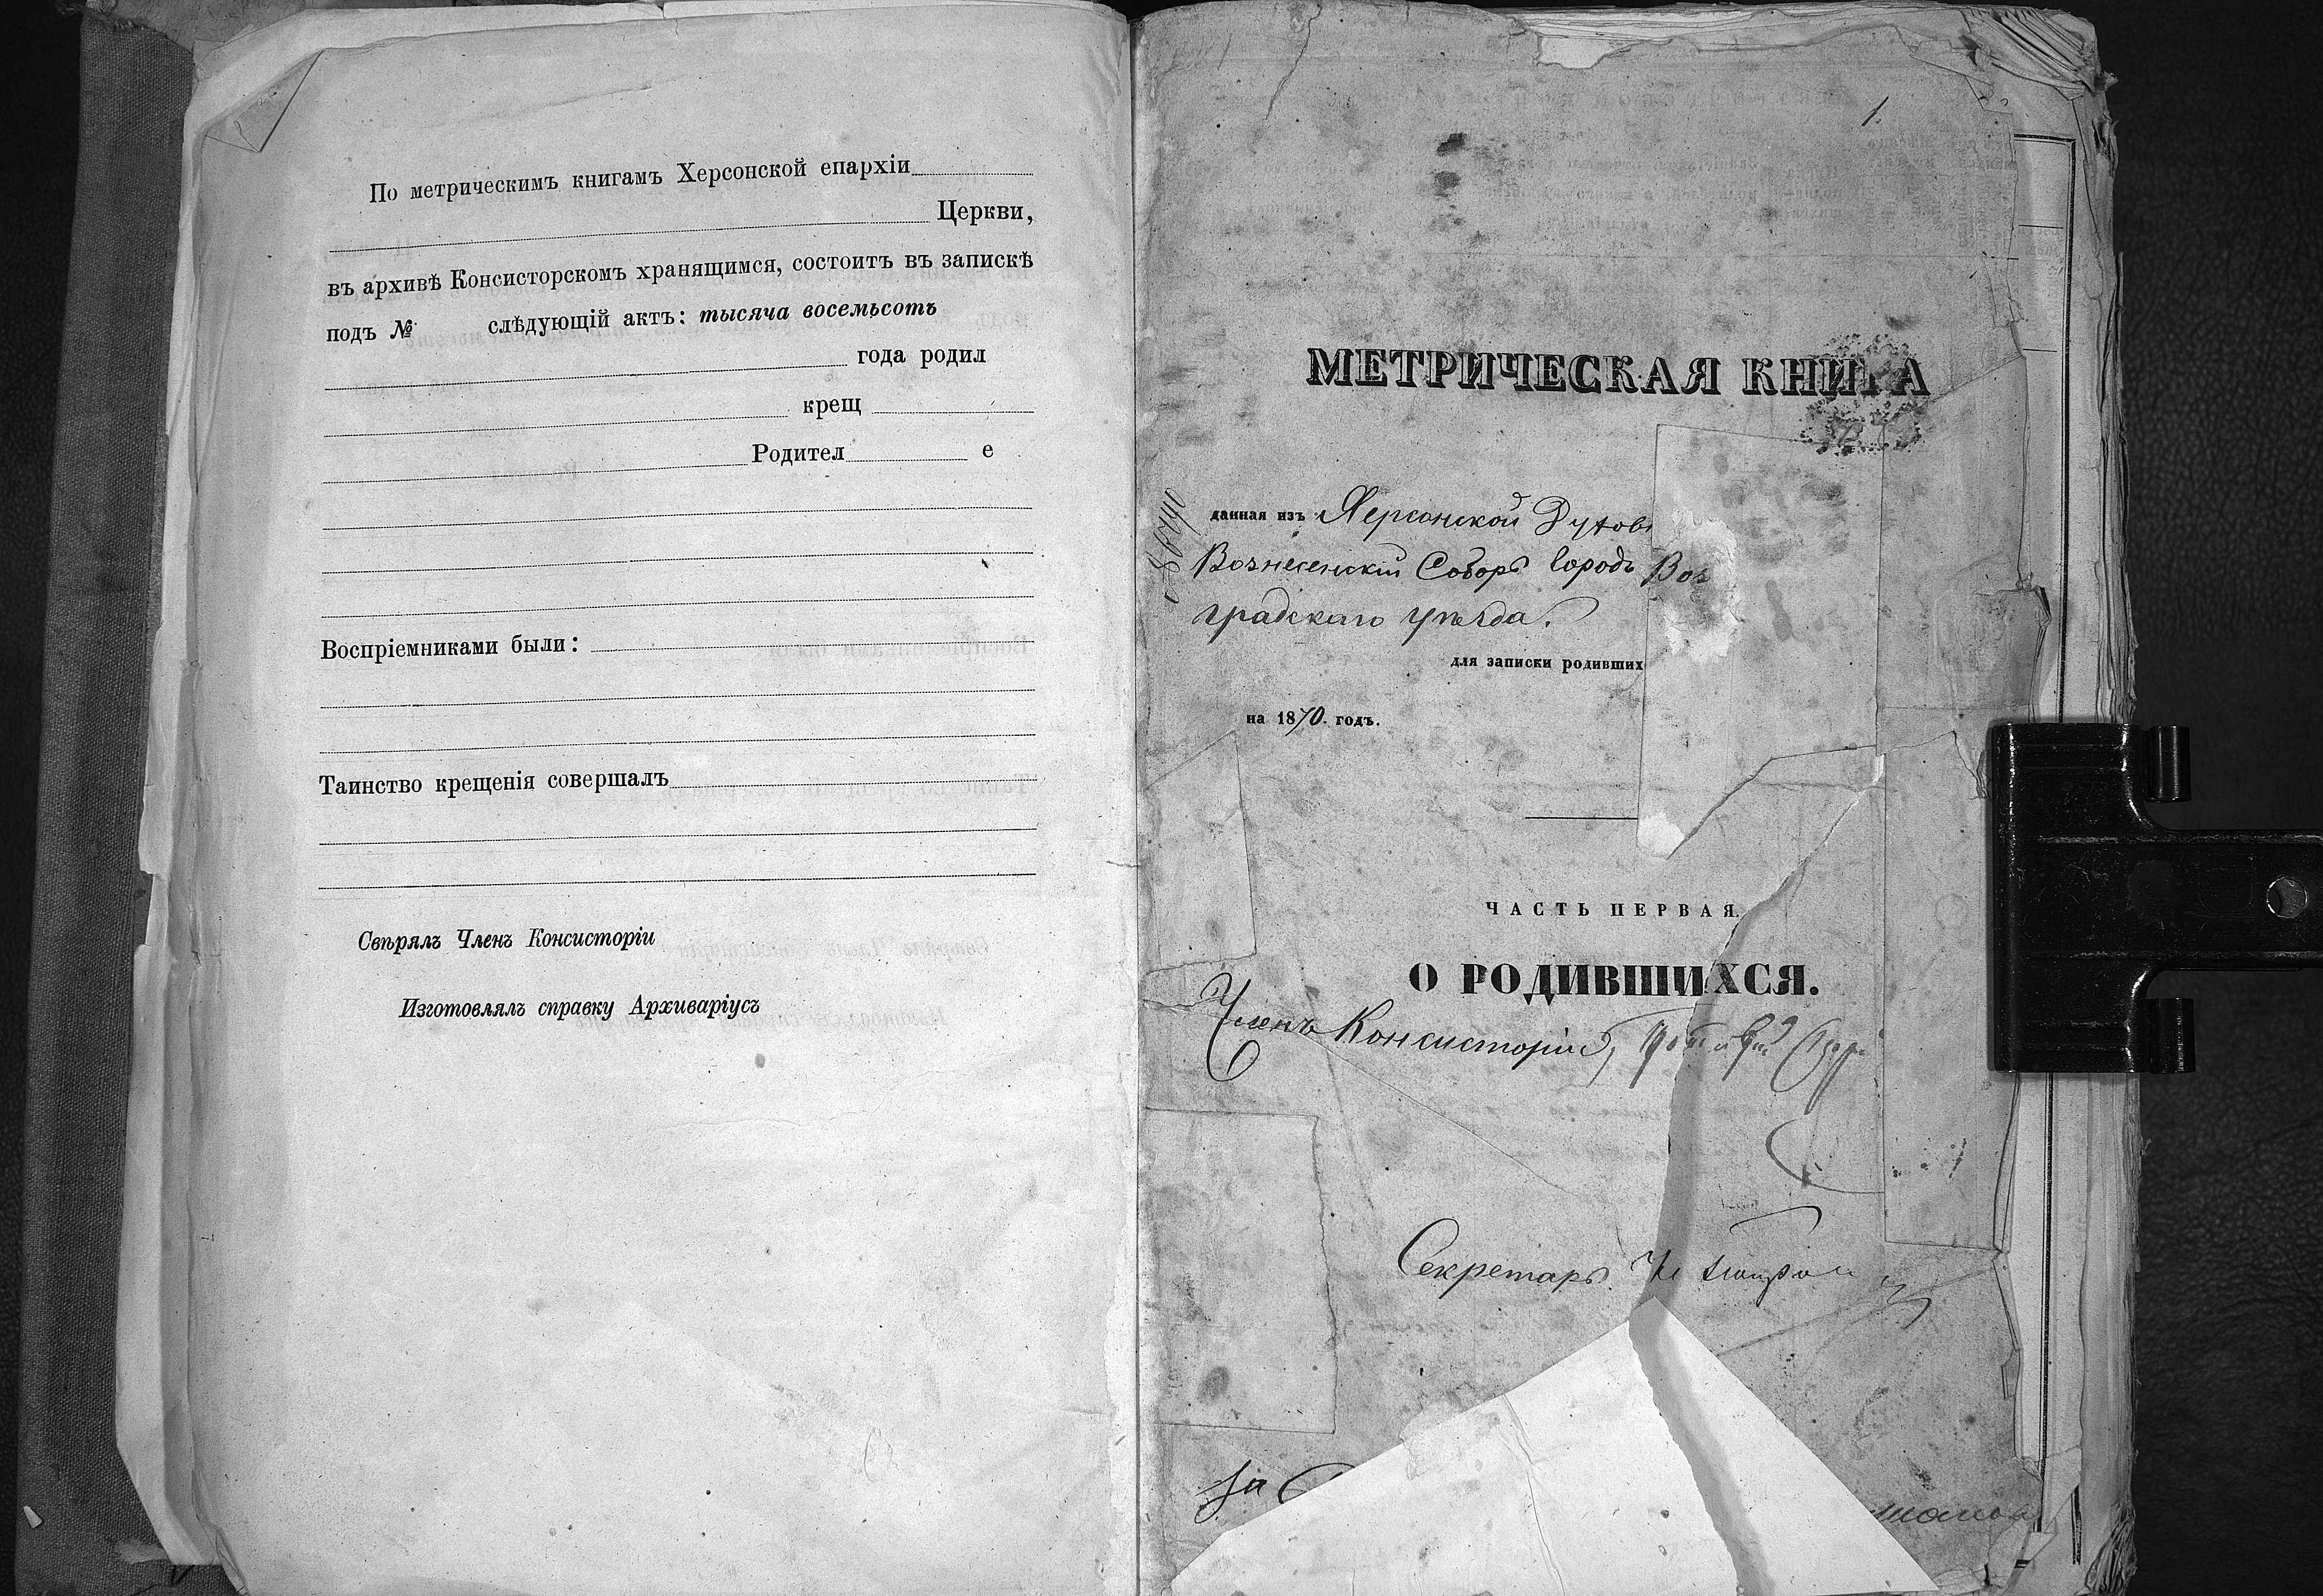 По метрическимъ книгамъ Херсонской епархіи
Церкви,
въ архивѣ Консисторскомъ хранящимся, состоитъ въ запискѣ
подъ № слѣдующій актъ: тысяча восемьсотъ
года родил
крещ
Родител е
Воспріемниками были:
Таинство крещенія совершалъ
Свѣрялъ Членъ Консисторіи
Изготовлялъ справку Архиваріусъ
1.
МЕТРИЧЕСКАЯ КНИГА
данная изъ Херсонской Духов
Вознесенскій Соборъ городъ Воз
градскаго уѣзда.
для записки родивших
на 1870. годъ.
ЧАСТЬ ПЕРВАЯ.
О РОДИВШИХСЯ.
Членъ Консисторіи,
Секретарь
За